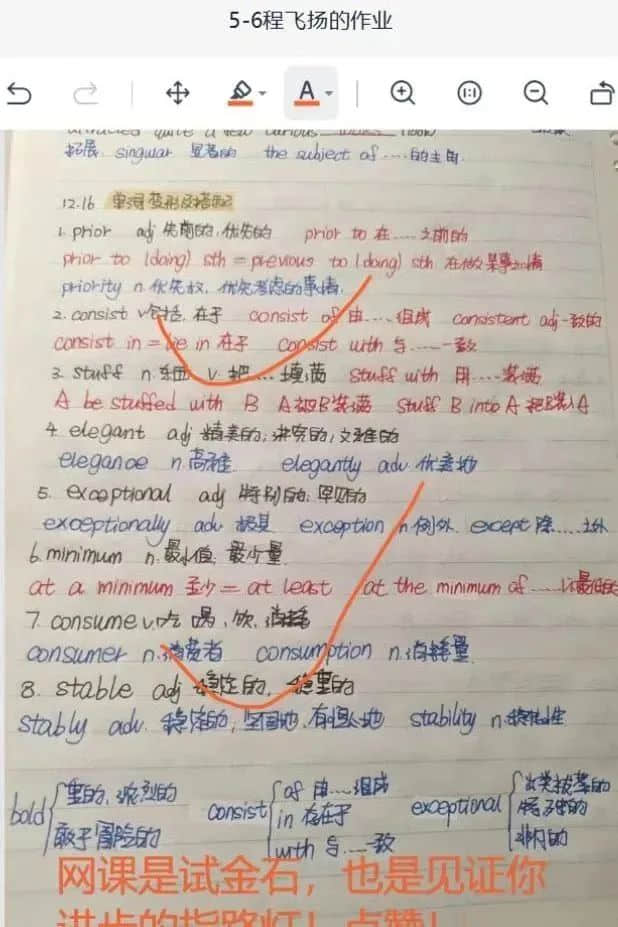 5-6程飞扬的作业
拓展. singular 显著的 the subject of ....的主題
12.16 单词变形及搭配
1. prior adj 先前的,优先的 prior to 在....之前的
prior to (doing) sth = previous to (doing) sth 在做某事之前
priority n.优先权. 优先考虑的事情.
2. consist v包括.在于 consist of 由....组成 consistent adj 一致的
consist in = lie in 在于 consist with 与....一致
3. stuff n.东西 v.把....填满 stuff with 用....装满
A be stuffed with B A把B装满 stuff B into A 把B装入A
4. elegant adj 精美的;讲究的,文雅的
elegance n.高雅 elegantly adv.优美地
5. exceptional adj 特别的;罕见的
exceptionally adv 极其 exception n.例外. except 除....之外
6. minimum n.最小值.最少量.
at a minimum 至少 = at least at the minimum of ....以最低的
7. consume v.吃 喝,饮.消耗
consumer n.消费者 consumption n.消耗量
8. stable adj 稳定的, 稳重的
stably adv. 稳定的;坚固地.有恒心地 stability n.稳定性
bold 重的,浓烈的 敢于冒险的
consist of 由....组成 in 存在于 with 与....一致
exceptional 出类拔萃的 特别的 非凡的
网课是试金石，也是见证你
进步的指路灯！点赞！